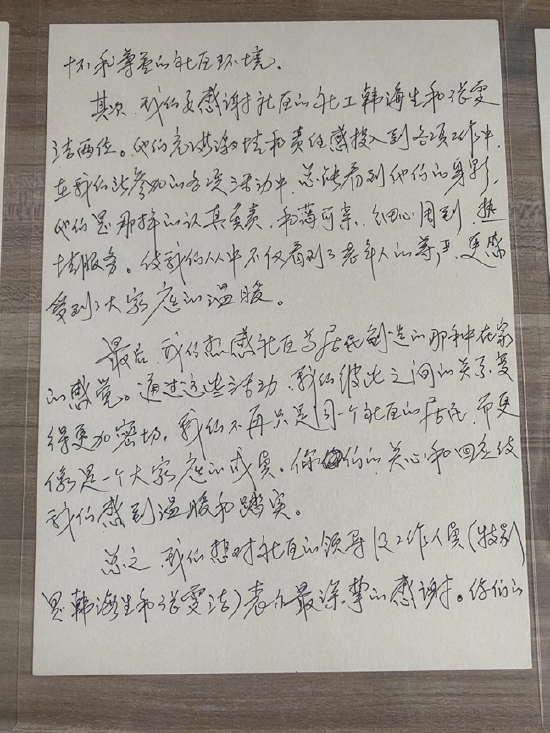 怀和尊荣的社区环境。
其次，我们要感谢社区的社工韩海生和张雯
洁两位。他们充满激情和责任感投入到各项工作中，
在我们所参加的各项活动中，总能看到他们的身影，
他们是那样的认真负责，和蔼可亲，细心周到，热
情服务。使我们从中不仅看到了老年人的尊严，更感
受到了大家庭的温暖。
最后，我们想感社区为居民创造的那种在家
的感觉。通过这些活动，我们彼此之间的关系变
得更加密切，我们不再只是同一个社区的居民，而更
像是一个大家庭的成员。你们的关心和照应使
我们感到温暖和踏实。
总之，我们想对社区的领导及工作人员（特别
是韩海生和张雯洁）表示最深挚的感谢。你们的